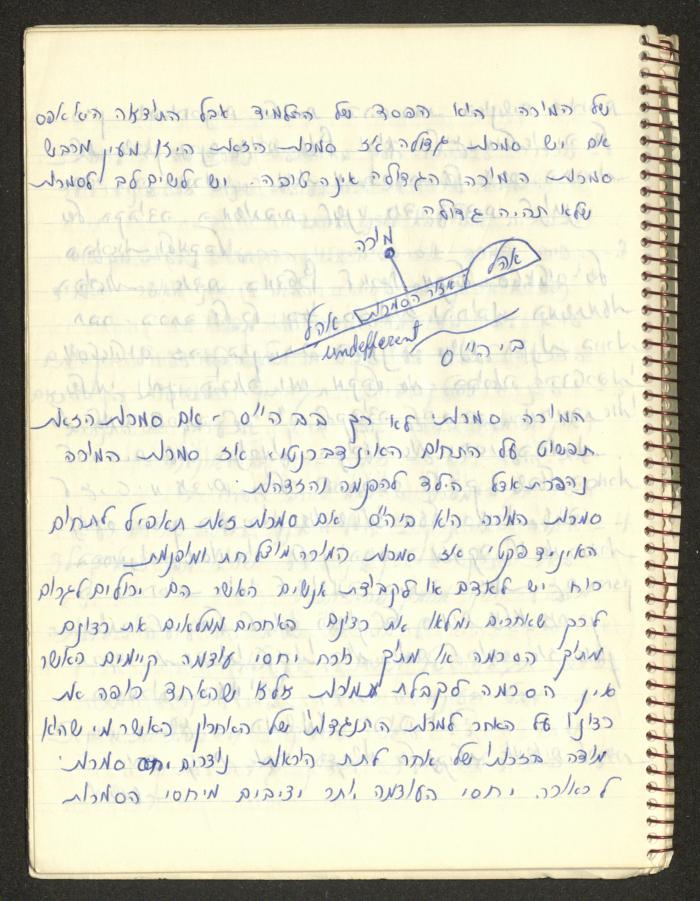 של המורה הוא הפסד של התלמיד אבל התוצאה היא אפס
אם יש סמכות גדולה אז סמכות הזאת היא מעין
סמכות המורה הגדולה אינה טובה. יש לשים לב לסמכות
שלא תהיה גדולה
מורה
אהל
אזור הסמכות
אהל
undefferent
ביהי"ס
המורה סמכות לא רק בביהי"ס - אם סמכות הזאת
תפשוט על התחום האינדפרנטי אז סמכות המורה
נהפכת אצל הילד להפנמה והזדהות.
סמכות המורה היא ביה"ס אם סמכות זאת תאפיל לתחום
האינדיפקטי אז סמכות המורה מוצלחת ומופנמת
כוח יש לאדם או לקבוצת אנשים אשר הם יכולים לגרום
לכך שאחרים ימלאו את רצונם האחרים ממלאים את רצונם
מתוך הסכמה או מתוך כורח יחסי עוצמה קיימים כאשר
אין הסכמה לקבלת סמכות אלא שהאחד כופה את
רצונו על האחר למרות התנגדותו של האחרון כאשר מי שהוא
מודה בזכותו של אחר לתת הוראות נוצרים יחסי סמכות.
לכאורה. יחסי העוצמה יותר יציבים מיחסי הסמכות